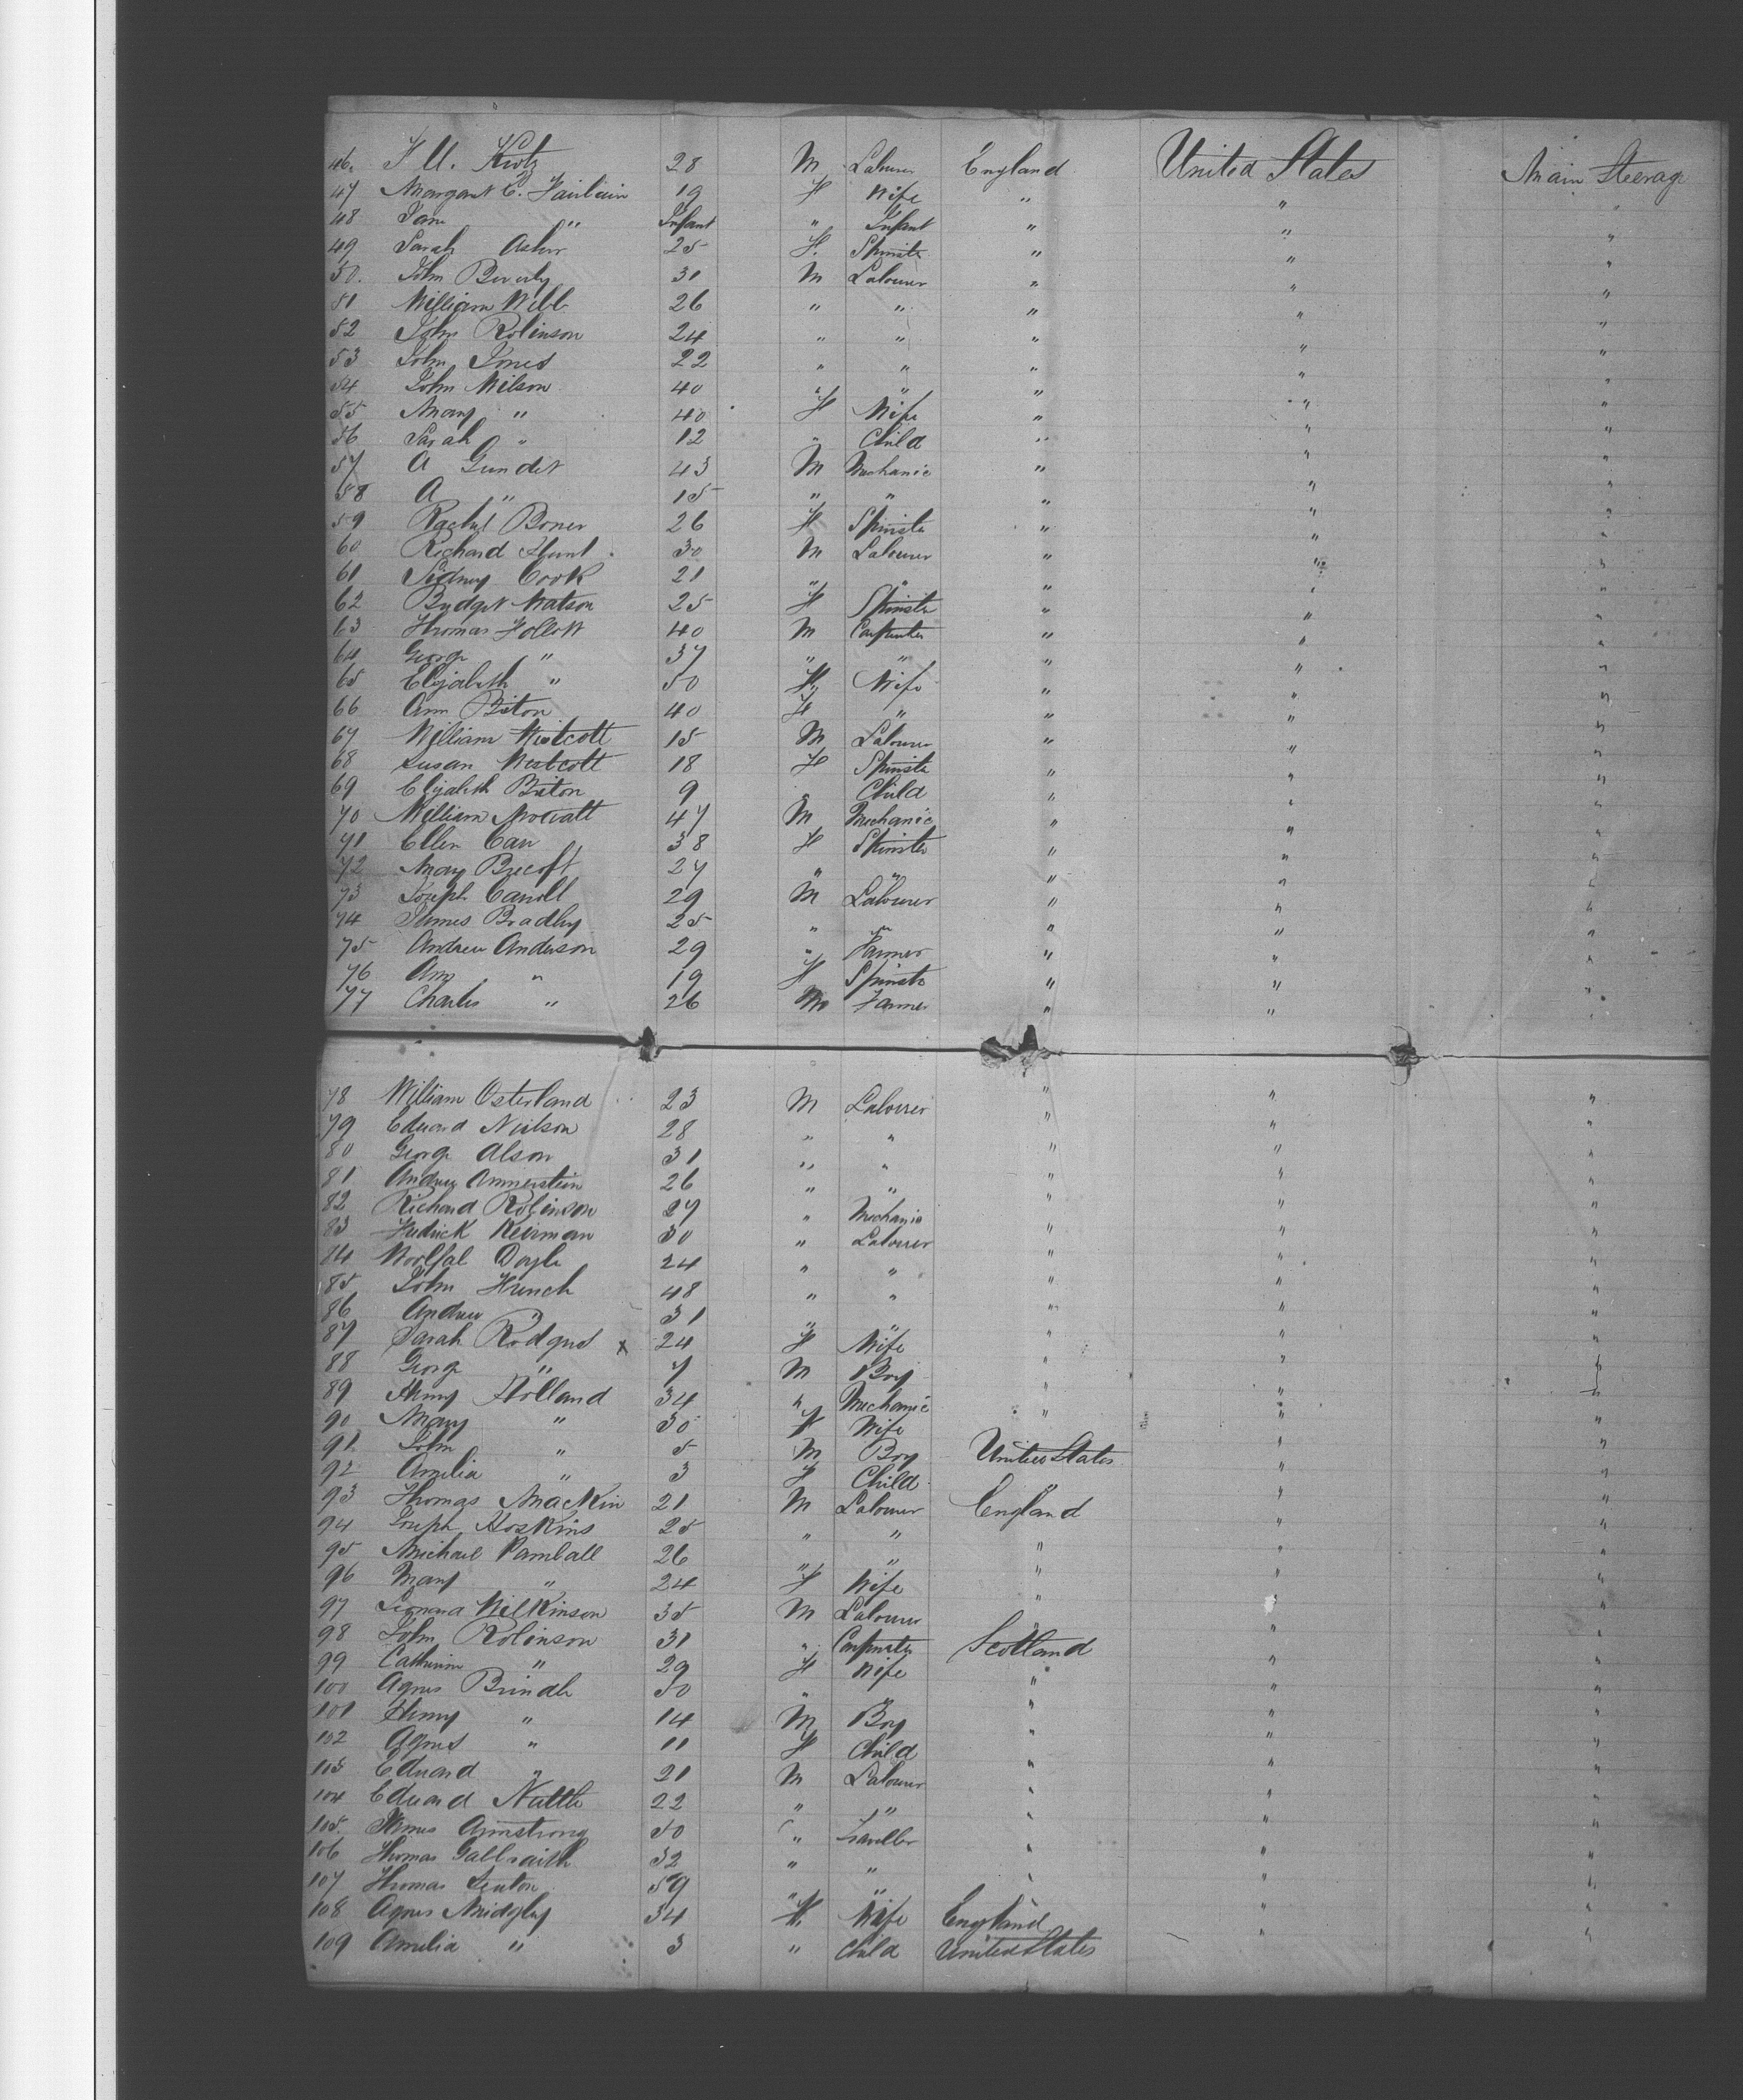 46. F M. Kutz 28 M Labourer England United States Main Steerage
47 Margaret C. Fairbairn 19 F Wife " " "
48 Jane " Infant " Infant " " "
49 Sarah Asher 25 F. Spinster " " "
50. John Beverly 31 M Labourer " " "
51 William Webb 26 " " " " "
52 John Robinson 24 " " " " "
53 John Jones 22 " " " " "
54 John Wilson 40 " " " " "
55 Mary " 40 F Wife " " "
56 Sarah " 12 " Child " " "
57 A Gundet 43 M Mechanic " " "
58 A " 15 " " " " "
59 Rachel Boner 26 F Spinster " " "
60 Richard Hunt 30 M Labourer " " "
61 Sidney Cook 21 " " " " "
62 Bridget Watson 25 F Spinster " " "
63 Thomas Follett 40 M Carpenter " " "
64 George " 37 " " " " "
65 Elizabeth " 50 F Wife " " "
66 Ann Biton 40 F " " " "
67 William Westcott 15 M Labourer " " "
68 Susan Westcott 18 F Spinster " " "
69 Elizabeth Biton 9 " Child " " "
70 William Mowatt 47 M Mechanic " " "
71 Ellen Carr 38 F Spinster " " "
72 Mary Brecoft 27 " " " " "
73 Joseph Carroll 29 M Labourer " " "
74 James Bradley 25 " " " " "
75 Andrew Anderson 29 " Farmer " " "
76 Amy " 19 F Spinster " " "
77 Charles " 26 M Farmer " " "
78 William Osterland 23 M Labourer " " "
79 Edward Neilson 28 " " " " "
80 George Alson 31 " " " " "
81 Andrew Ammerstein 26 " " " " "
82 Richard Robinson 27 " Mechanic " " "
83 Fredrick Keirman 30 " Labourer " " "
84 Doyle 24 " " " " "
85 John Hunch 48 " " " " "
86 Andrew " 31 " " " " "
87 Sarah Rodgers x 24 F Wife " " "
88 George " 7 M Boy " " "
89 Henry Holland 34 " Mechanic " " "
90 Mary " 30 F Wife " " "
91 John " 5 M Boy United States " "
92 Amelia " 3 F Child " " "
93 Thomas Mackin 21 M Labourer England " "
94 Joseph Hoskins 25 " " " "
95 Michael Pamball 26 " " " " "
96 Mary " 24 F Wife " " "
97 Wilkinson 35 M Labourer " " "
98 John Robinson 31 " Carpenter Scotland " "
99 Catherine " 29 F Wife " " "
100 Agnes Brindle 50 " " " " "
101 Henry " 14 M Boy " " "
102 Agnes " 11 F Child " " "
103 Edward " 21 M Labourer " " "
104 Edward Nuttle 22 " " " " "
105. James Armstrong 50 " Traveller " " "
106 Thomas Galbraith 32 " " " " "
107 Thomas Senton 59 " " " " "
108 Agnes Midgley 34 F. Wife England " "
109 Amelia " 3 " Child United States " "